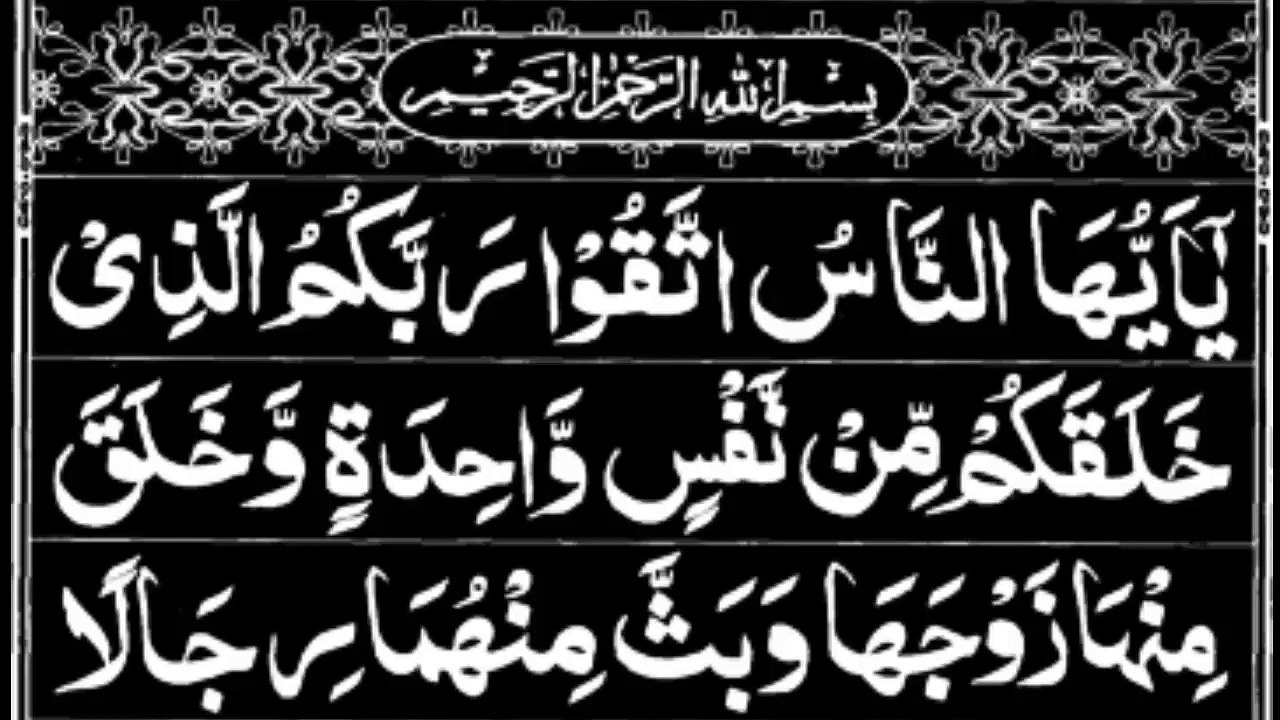 بِسْمِ اللّٰهِ الرَّحْمٰنِ الرَّحِيْمِ
يٰۤاَيُّهَا النَّاسُ اتَّقُوْا رَبَّكُمُ الَّذِىْ
خَلَقَكُمْ مِّنْ نَّفْسٍ وَّاحِدَةٍ وَّخَلَقَ
مِنْهَا زَوْجَهَا وَبَثَّ مِنْهُمَا رِجَالًا